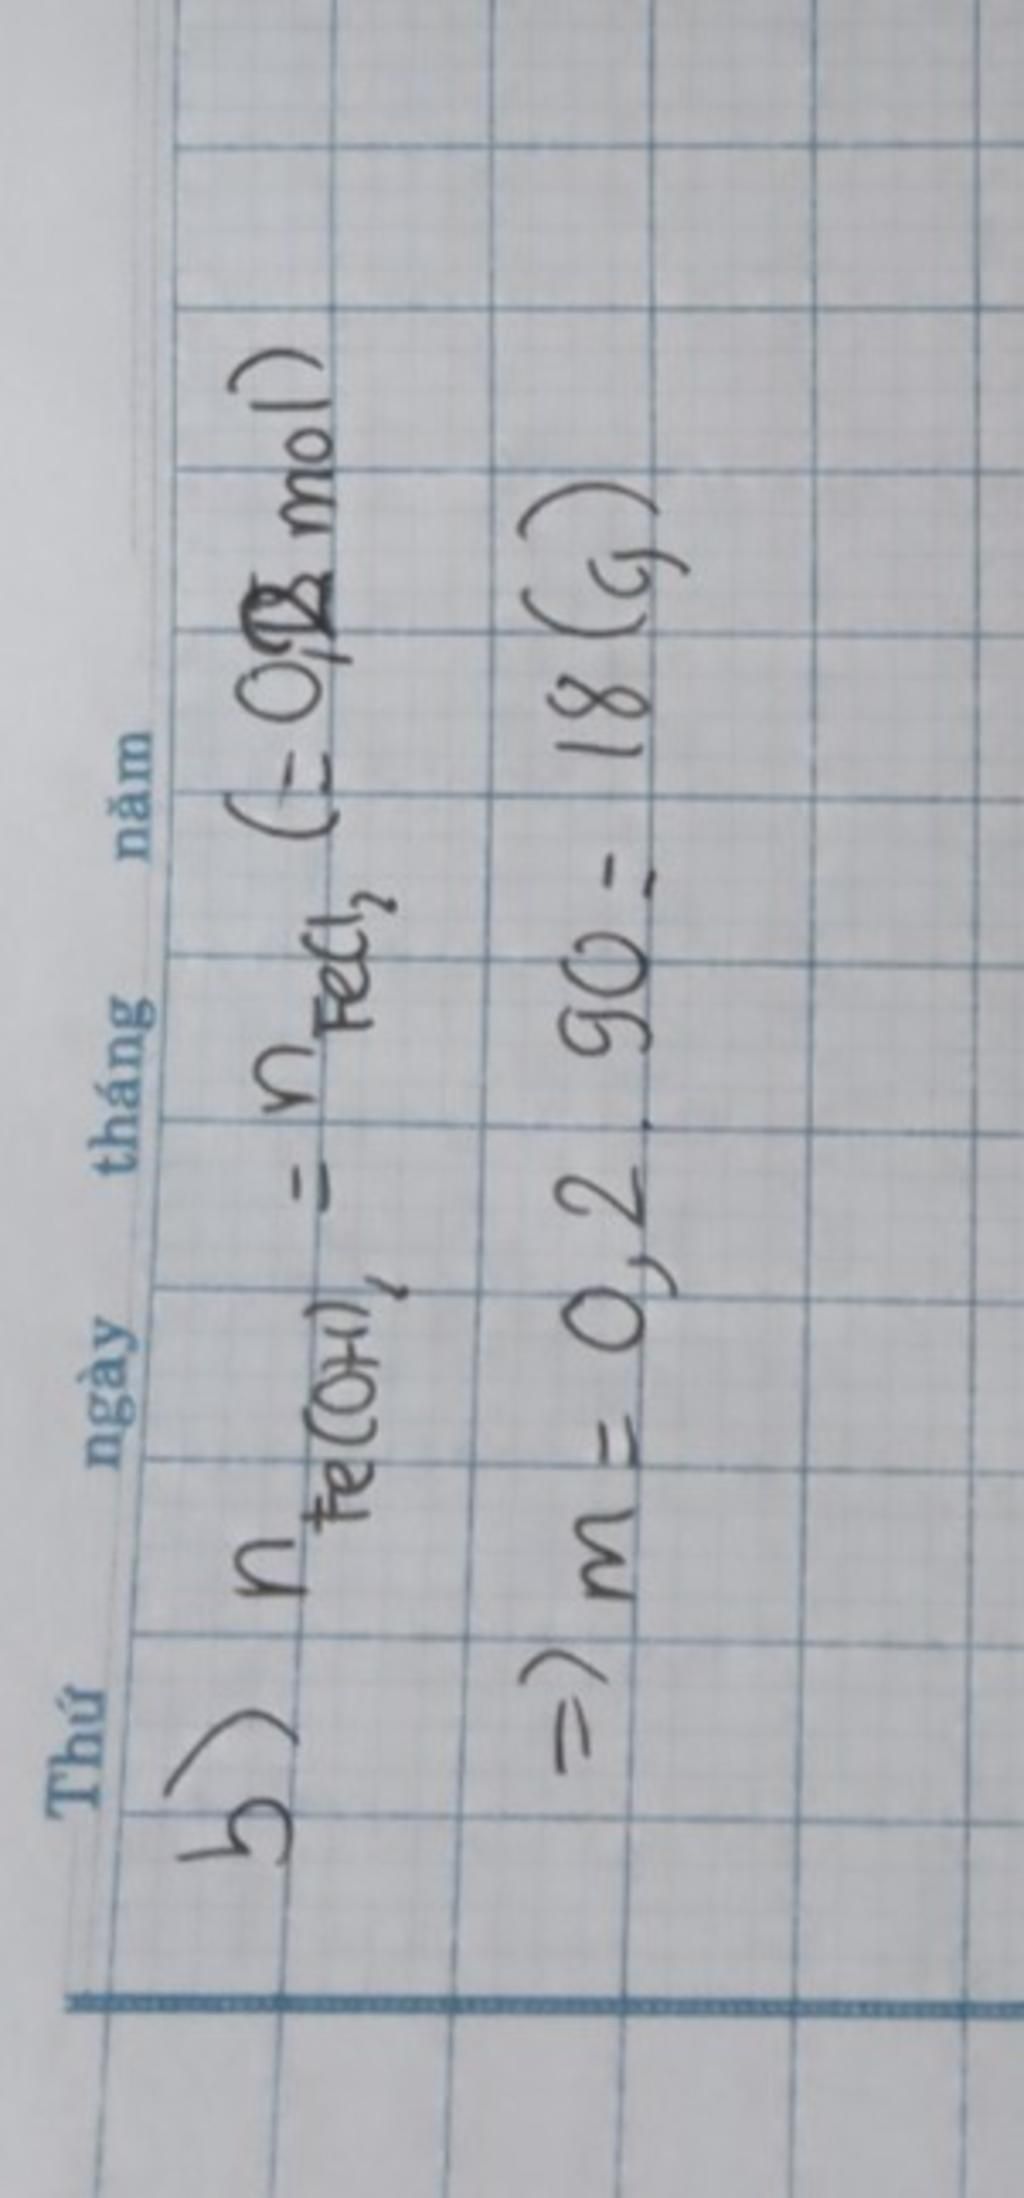 Thứ ngày tháng năm
b) n Fe(OH)₂ = n FeCl₂ (= 0,2 mol)
=) m = 0,2 . 90 = 18 (g)